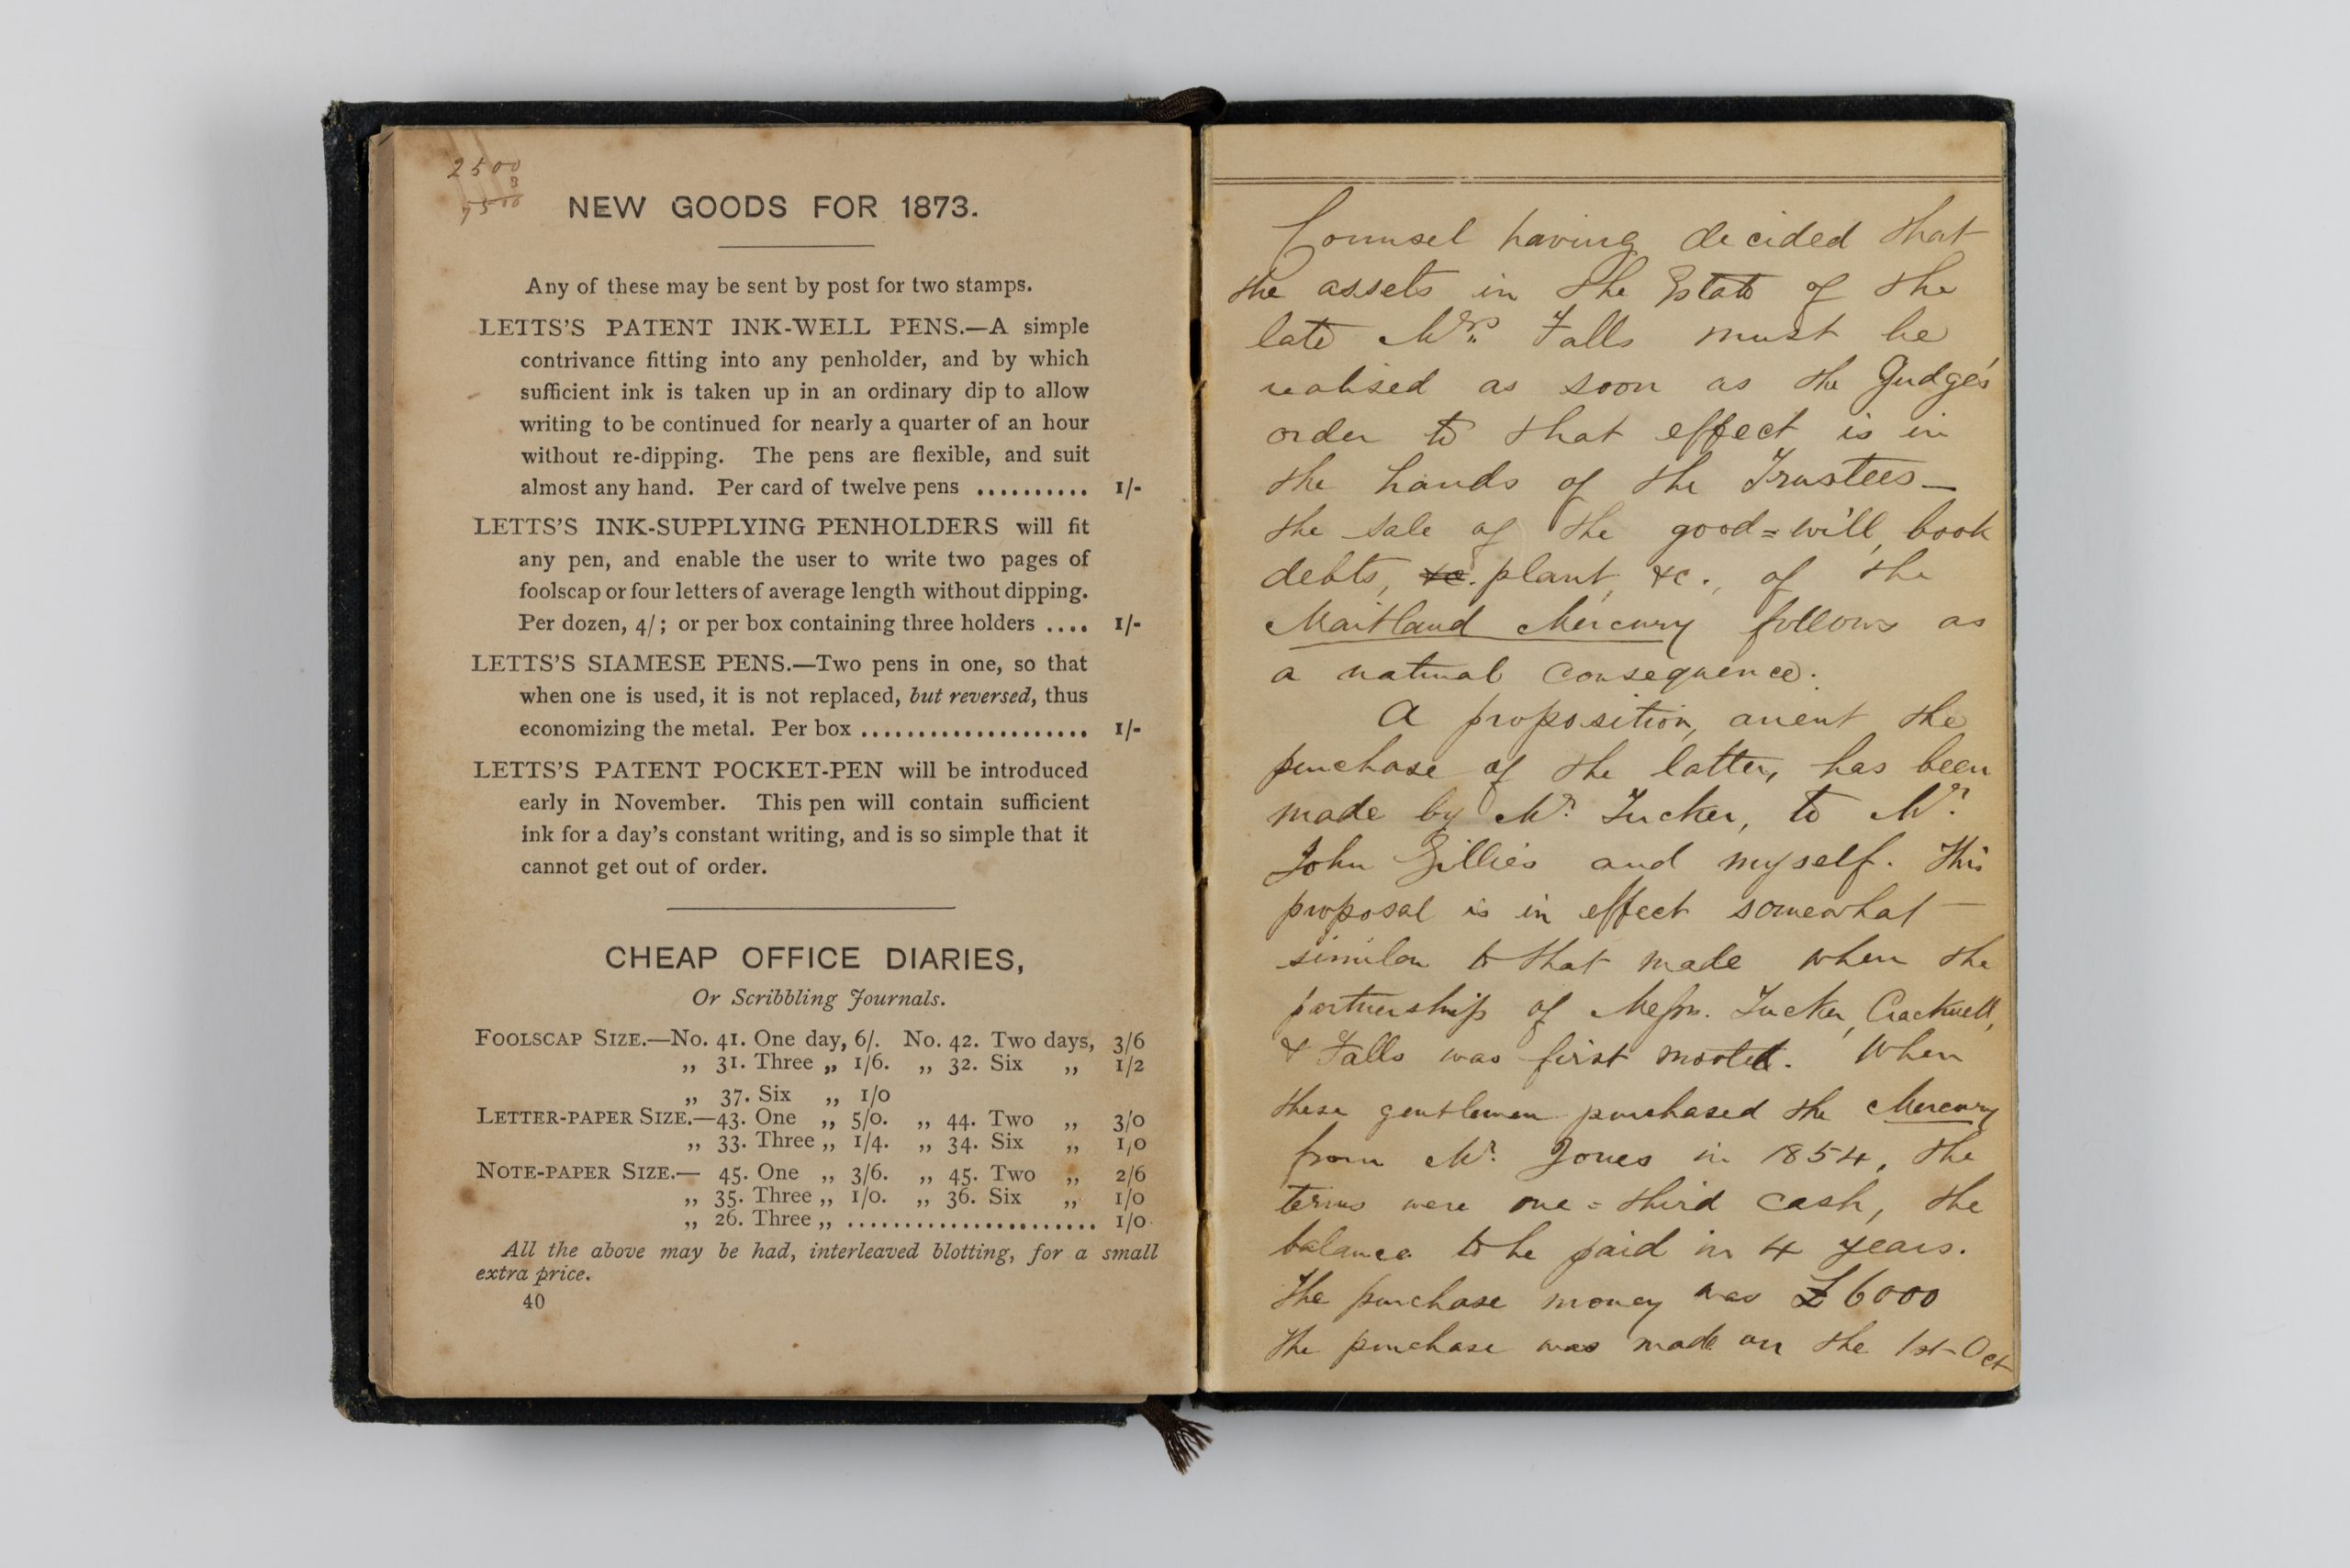 2500
3
7500
NEW GOODS FOR 1873.
Any of these may be sent by post for two stamps.
LETTS'S PATENT INK-WELL PENS.—A simple
contrivance fitting into any penholder, and by which
sufficient ink is taken up in an ordinary dip to allow
writing to be continued for nearly a quarter of an hour
without re-dipping. The pens are flexible, and suit
almost any hand. Per card of twelve pens .......... 1/-
LETTS'S INK-SUPPLYING PENHOLDERS will fit
any pen, and enable the user to write two pages of
foolscap or four letters of average length without dipping.
Per dozen, 4/; or per box containing three holders .... 1/-
LETTS'S SIAMESE PENS.—Two pens in one, so that
when one is used, it is not replaced, but reversed, thus
economizing the metal. Per box .................... 1/-
LETTS'S PATENT POCKET-PEN will be introduced
early in November. This pen will contain sufficient
ink for a day's constant writing, and is so simple that it
cannot get out of order.
CHEAP OFFICE DIARIES,
Or Scribbling Journals.
FOOLSCAP SIZE.—No. 41. One day, 6/. No. 42. Two days, 3/6
„ 31. Three „ 1/6. „ 32. Six „ 1/2
„ 37. Six „ 1/0
LETTER-PAPER SIZE.—43. One „ 5/0. „ 44. Two „ 3/0
„ 33. Three „ 1/4. „ 34. Six „ 1/0
NOTE-PAPER SIZE.— 45. One „ 3/6. „ 45. Two „ 2/6
„ 35. Three „ 1/0. „ 36. Six „ 1/0
„ 26. Three „ ...................... 1/0
All the above may be had, interleaved blotting, for a small
extra price.
40
Counsel having decided that
the assets in the Estate of the
late Mrs. Falls must be
realised as soon as the Judge's
order to that effect is in
the hands of the Trustees—
the sale of the good=will, book
debts, &c. plant, &c., of the
Maitland Mercury follows as
a natural consequence.
A proposition, anent the
purchase of the latter, has been
made by Mr. Tucker, to Mr.
John Gillies and myself. This
proposal is in effect somewhat
similar to that made when the
partnership of Messrs. Tucker, Cracknell,
& Falls was first mooted. When
these gentlemen purchased the Mercury
from Mr. Jones in 1854, the
terms were one=third cash, the
balance to be paid in 4 years.
The purchase money was £6000
The purchase was made on the 1st Oct